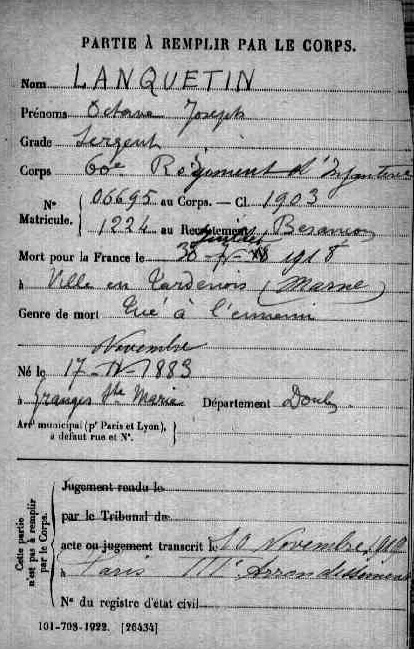 PARTIE À REMPLIR PAR LE CORPS.
Nom LANQUETIN
Prénoms Octave Joseph
Grade Sergent
Corps 60e Régiment d'Infanterie
N° Matricule. { 06695 au Corps. — Cl. 1903
1224 au Recrutement Besançon
Juillet
Mort pour la France le 30 1918
à Ville en Tardenois (Marne)
Genre de mort Tué à l'ennemi
Novembre
Né le 17 1883
à Granges Ste Marie Département Doubs
Arr^t municipal (p^r Paris et Lyon), à défaut rue et N°.
Cette partie n'est pas à remplir par le Corps.
Jugement rendu le
par le Tribunal de
acte ou jugement transcrit le 10 Novembre 1919
à Paris IIIe Arrondissement
N° du registre d'état civil
101-708-1922. [26434]